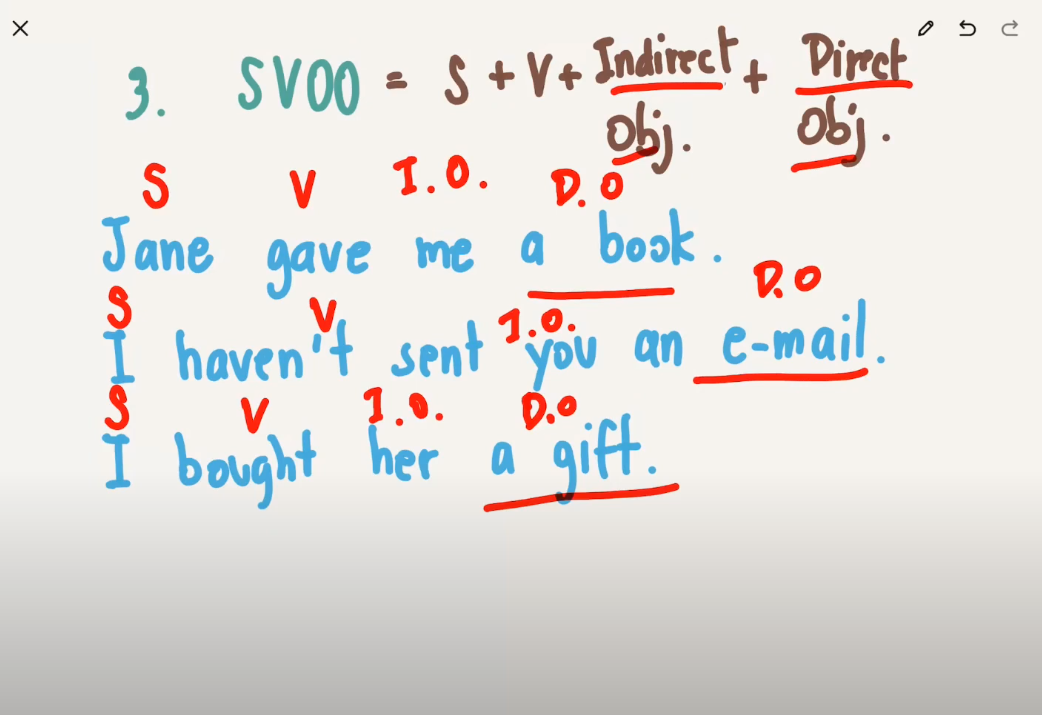 3. SVOO = S + V + Indirect Obj. + Direct Obj.
S V I.O. D.O
Jane gave me a book.
S V I.O. D.O
I haven't sent you an e-mail.
S V I.O. D.O
I bought her a gift.